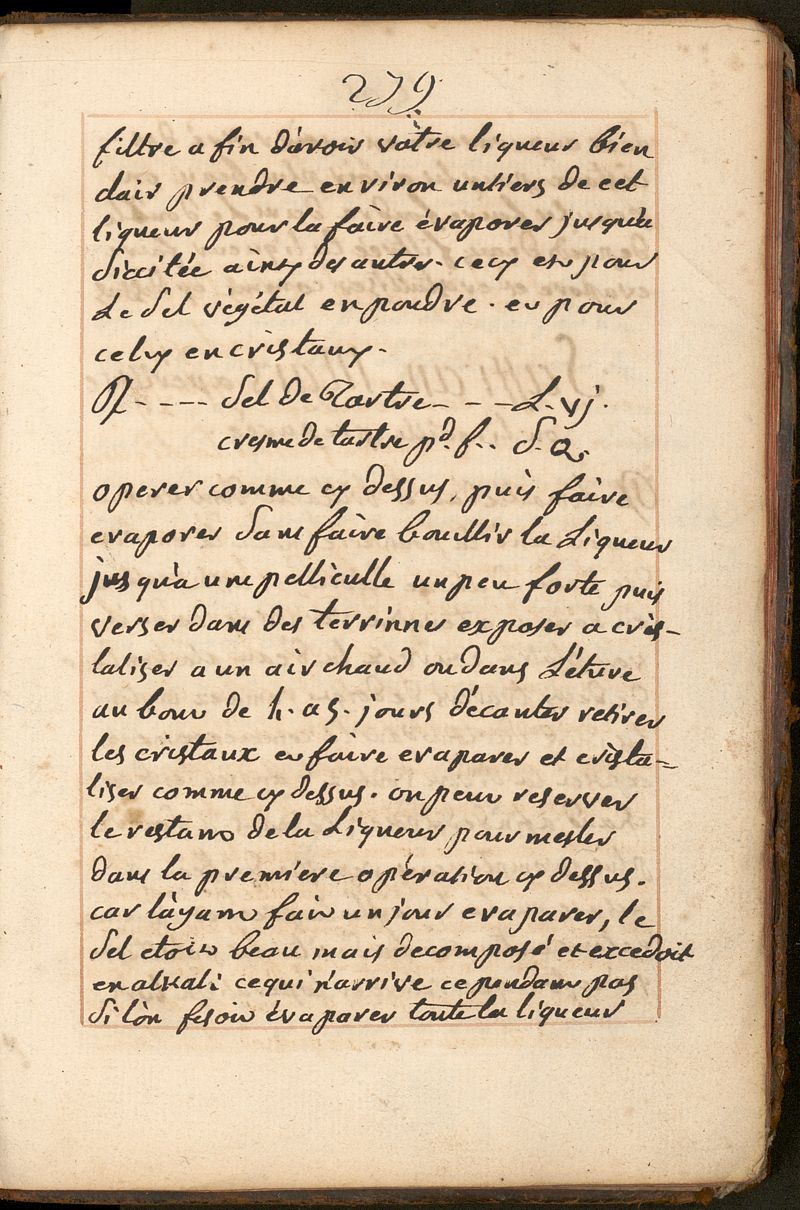 279
filtre a fin d'avoir vôtre liqueur bien
clair prendre environ untiers de cet
liqueur pour la faire évaporer jusqu'a
siccitée ainsy des autres. cecy est pour
Le Sel végétal en poudre. et pour
celuy en cristaux.
℞ - - - - Sel de Tartre - - - L. vj.
cresme de tartre pd. f.. S. Q.
operer comme cy dessus, puis faire
evaporer sans faire bouillir la Liqueur
jusqu'a une pelliculle un peu forte puis
verser dans des terrinnes exposer a cris-
taliser a un air chaud ou dans L'étuve
au bout de 4. a 5. jours décanter retirer
les cristaux et faire evaparer et crista=
liser comme cy dessus. on peut reserver
le restant de la Liqueur pour mesler
dans la premiere opération cy dessus.
car l'àyant fait un jour evaparer, le
Sel etoit beau mais decomposé et excedoit
en alkali ce qui n'arrive ce pendant pas
Si l'òn fesoit évaparer toute la liqueur